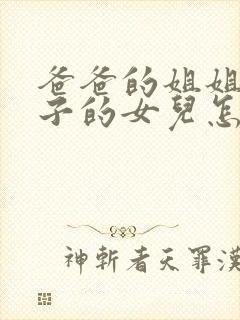 爸爸的姐姐
子的女兒怎
神斬者天罪漢